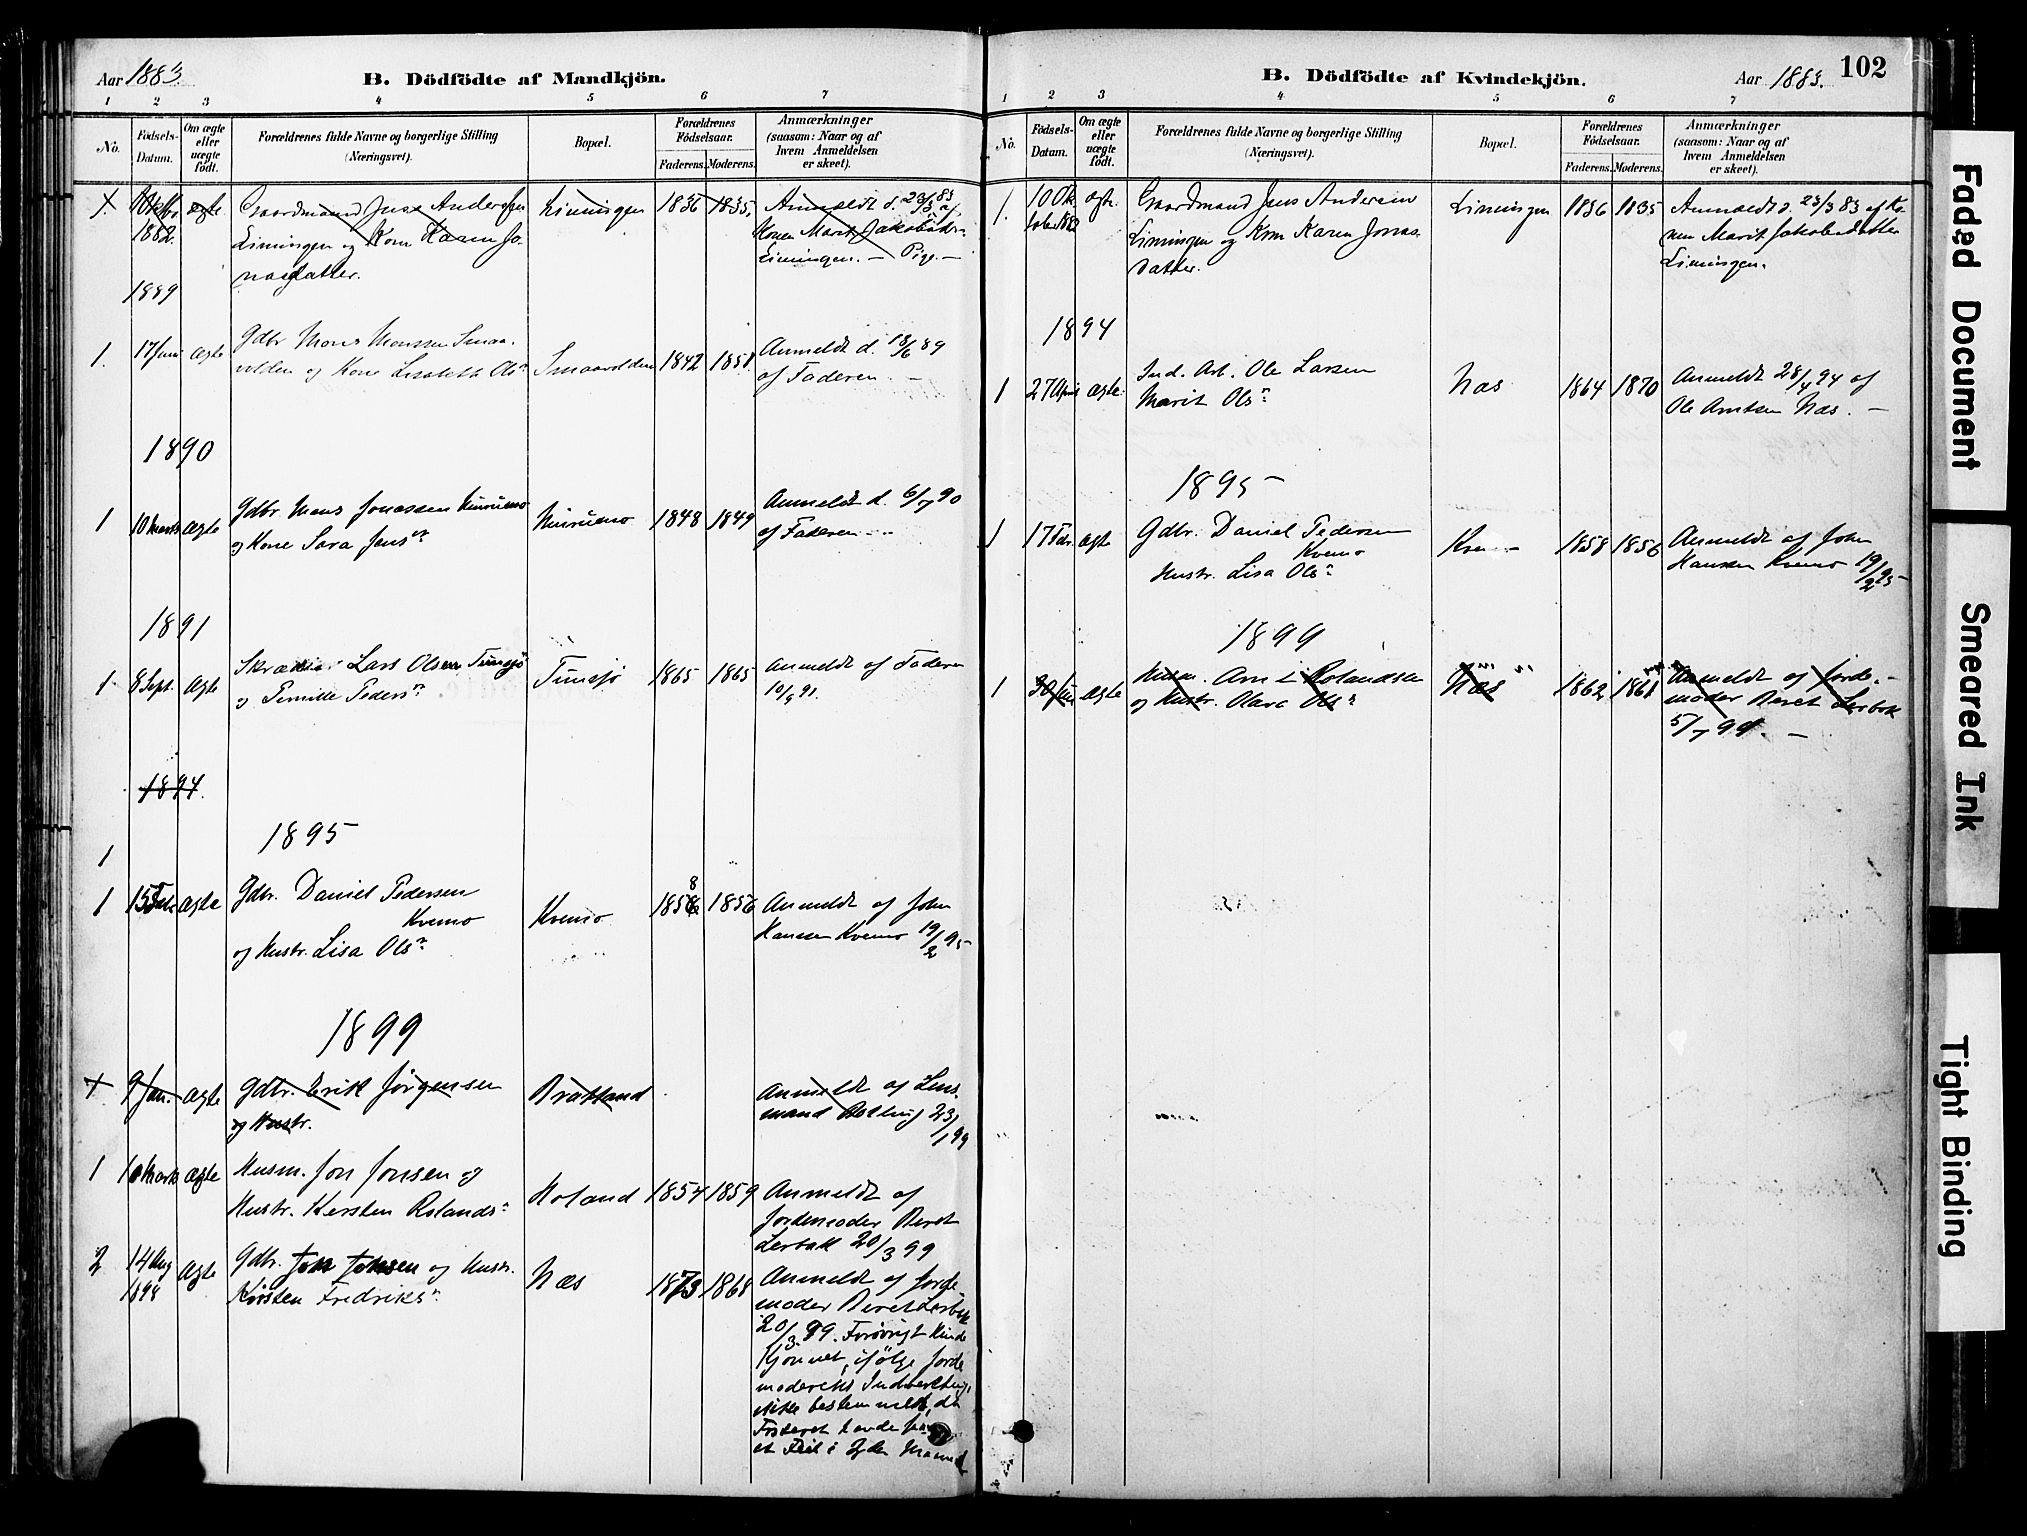 Aar 1883
B. Dödfödte af Mandkjön.
1 2 3 4 5 6 7
No.
Födsels-Datum.
Om ægte eller uægte födt.
Forældrenes fulde Navne og borgerlige Stilling (Næringsvei).
Bopæl.
Forældrenes Födselsaar.
Faderens. Moderens.
Anmærkninger (saasom: Naar og af hvem Anmeldelsen er skeet).
1882. ægte Gaardmand Jens Andersen Limingen 1836 1835. Anmeldt d. 23/3 83 af
Limingen og Kone Karen Jo-
nasdatter.
Konen Marit Jakobsdtr
Limingen. — Pige. —
1889
1. 17 Juni ægte Gdbr Mons Monssen Smaa-
volden og Kone Lisabeth Ols
Smaavolden 1842 1851 Anmeldt d. 18/6 89
af Faderen. —
1890
1 10 Marts ægte Gdbr. Mons Jonassen
og Kone Sara Jens
1848 1849 Anmeldt d. 6/7 90
af Faderen —
1891
1 8 Sept. ægte Skrædder Lars Olsen Tunsjø
og Pernille Peders
Tunsjø 1865 1865 Anmeldt af Faderen
10/9 91.
1894.
1895
1
1 15 Feb ægte Gdbr. Daniel Pedersen
Kvemo
og Hustr. Lisa Ols
Kvemo 1858 1856 Anmeldt af John
Hansen Kvemo 19/2 95
1899
9 Jan. ægte Gdbr. Erik Jörgensen
og Hustr.
Bratland
Anmeldt af Lens-
mand 23/1 99
1 10 Marts ægte Husm. Jon Jonsen og
Hustr. Kersten Rolands
Holand 1854 1859 Anmeldt af
Jordemoder Beret
Lerbak 20/3 99
2 14 Aug 1898 ægte Gdbr. Jon Johsen og Hustr.
Kirsten Fredriks
Næs 1873 1868 Anmeldt af Jorde-
moder Beret Lerbak
20/3 99. Forøvrigt
Kjønnet, ifølge Jorde
moderens Indberetning,
ikke bestemmelt, da
Fosteret havde
et Feil i 7de Maaned
102
B. Dödfödte af Kvindekjön.
Aar 1883.
1 2 3 4 5 6 7
No.
Födsels-Datum.
Om ægte eller uægte födt.
Forældrenes fulde Navne og borgerlige Stilling (Næringsvei).
Bopæl.
Forældrenes Födselsaar.
Faderens. Moderens.
Anmærkninger (saasom: Naar og af hvem Anmeldelsen er skeet).
1. 10 Ok-
tober 1882 ægte. Gaardmand Jens Andersen
Limingen og Kone Karen Jonas-
datter.
Limingen 1836 1835 Anmeldt d. 23/3 83 af Ko-
nen Marit Jakobsdatter
Limingen.
1894
1 27 April ægte Ind. Arb. Ole Larsen
Marit Ols
Næs 1864 1870 Anmeldt 28/4 94 af
Ole Arntsen Næs. —
1895
1 17 Febr ægte Gdbr. Daniel Pedersen
Kvemo
Hustr. Lisa Ols
1858 1856 Anmeldt af John
Hansen Kvemo 19/2 95
1899
1 30 Juni ægte Husm. Arn Rolandsen
og Hustr. Olava Ols
Næs 1862 1861 Anmeldt af Jorde-
moder Beret Lerbak
5/7 99. —
Faded Document
Smeared Ink
Tight Binding